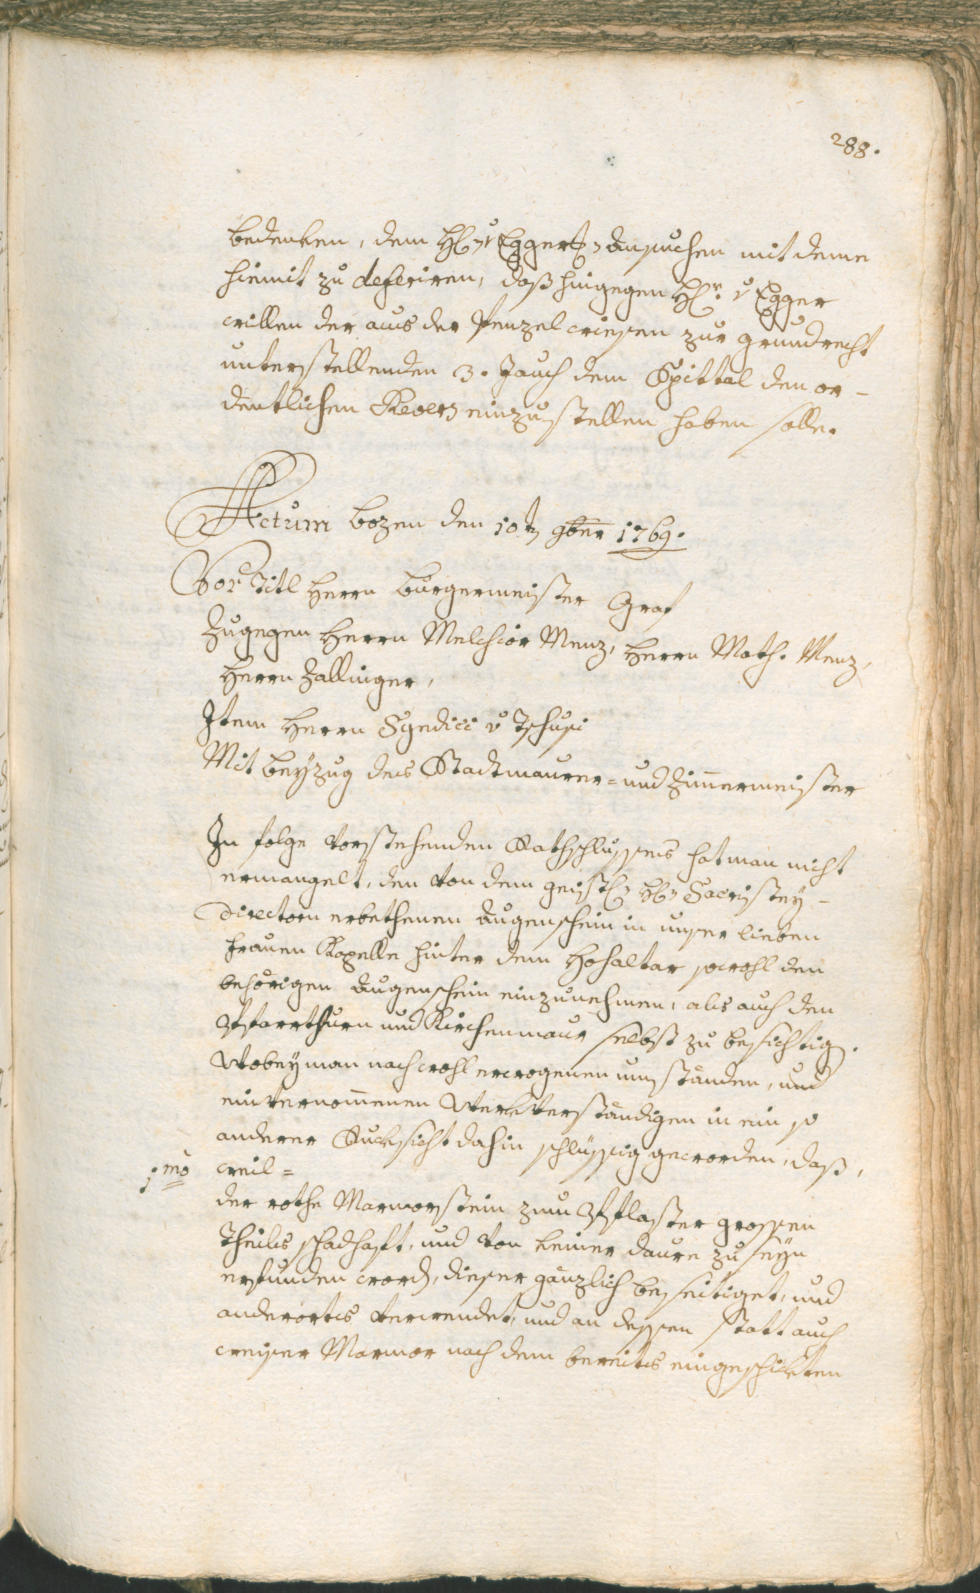 288.
bedenken, dem H: v Eggerts ansuchen mit deme
hiemit zu deferiren, daß hingegen H:r v Egger
willen der aus der Penzelwiesen zur grundrecht
unterstellenden 3. Jauch dem Spittal den or-
dentlichen Revers einzustellen haben solle.
Actum bozen den 10t 9ber 1769.
Vor Titl Herrn burgermeister Graf
Zugegen Herrn Melchior Menz, Herrn Math. Menz,
Herrn Zallinger,
Item Herrn Syndici v Tschusi
Mit beyzug des Stadtmaurer- und Zimmermeister
In folge vorstehenden Rathschlusses hat man nicht
ermangelt, den von dem geistl: H: Sacristey-
Directorn erbethenen Augenschein in unser lieben
frauen Kapelle hinter dem Hohaltar sowohl den
behörigen Augenschein einzunehmen, als auch den
Pfarrthurn und Kirchenmaur selbst zu besichtig.
Wobey man nach wohl erwogenen umständen, und
einvernommenen Werkverständigen in ein so
anderer Rucksicht dahin schlüssig geworden, daß,
1mo weil=
der rothe Marmorstein zum Pflaster grossen
Theils schadhaft, und von keiner daure zu seyn
erfunden word, dieser gänzlich beseitiget, und
anderorts verwendet, und an dessen statt auch
weiser Marmor nach dem bereits eingeschikten